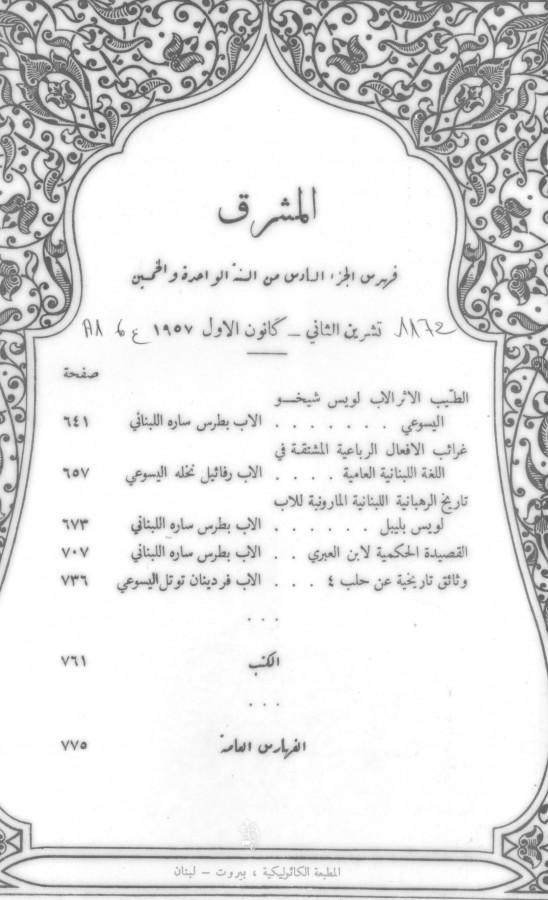 المشرق
فهرس الجزء السادس من السنة الواحدة والخمسين
تشرين الثاني – كانون الاول ١٩٥٧
صفحة
الطيّب الاثر الاب لويس شيخو
اليسوعي . . . . . . . الاب بطرس ساره اللبناني ٦٤١
غرائب الافعال الرباعية المشتقة في
اللغة اللبنانية العامية . . . . الاب رفائيل نخله اليسوعي ٦٥٧
تاريخ الرهبانية اللبنانية المارونية للاب
لويس بليبل . . . . . . الاب بطرس ساره اللبناني ٦٧٣
القصيدة الحكمية لابن العبري . . الاب بطرس ساره اللبناني ٧٠٧
وثائق تاريخية عن حلب ٤ . . . الاب فردينان توتل اليسوعي ٧٣٦
. . .
الكتب ٧٦١
. . .
الفهارس العامة ٧٧٥
المطبعة الكاثوليكية ، بيروت – لبنان